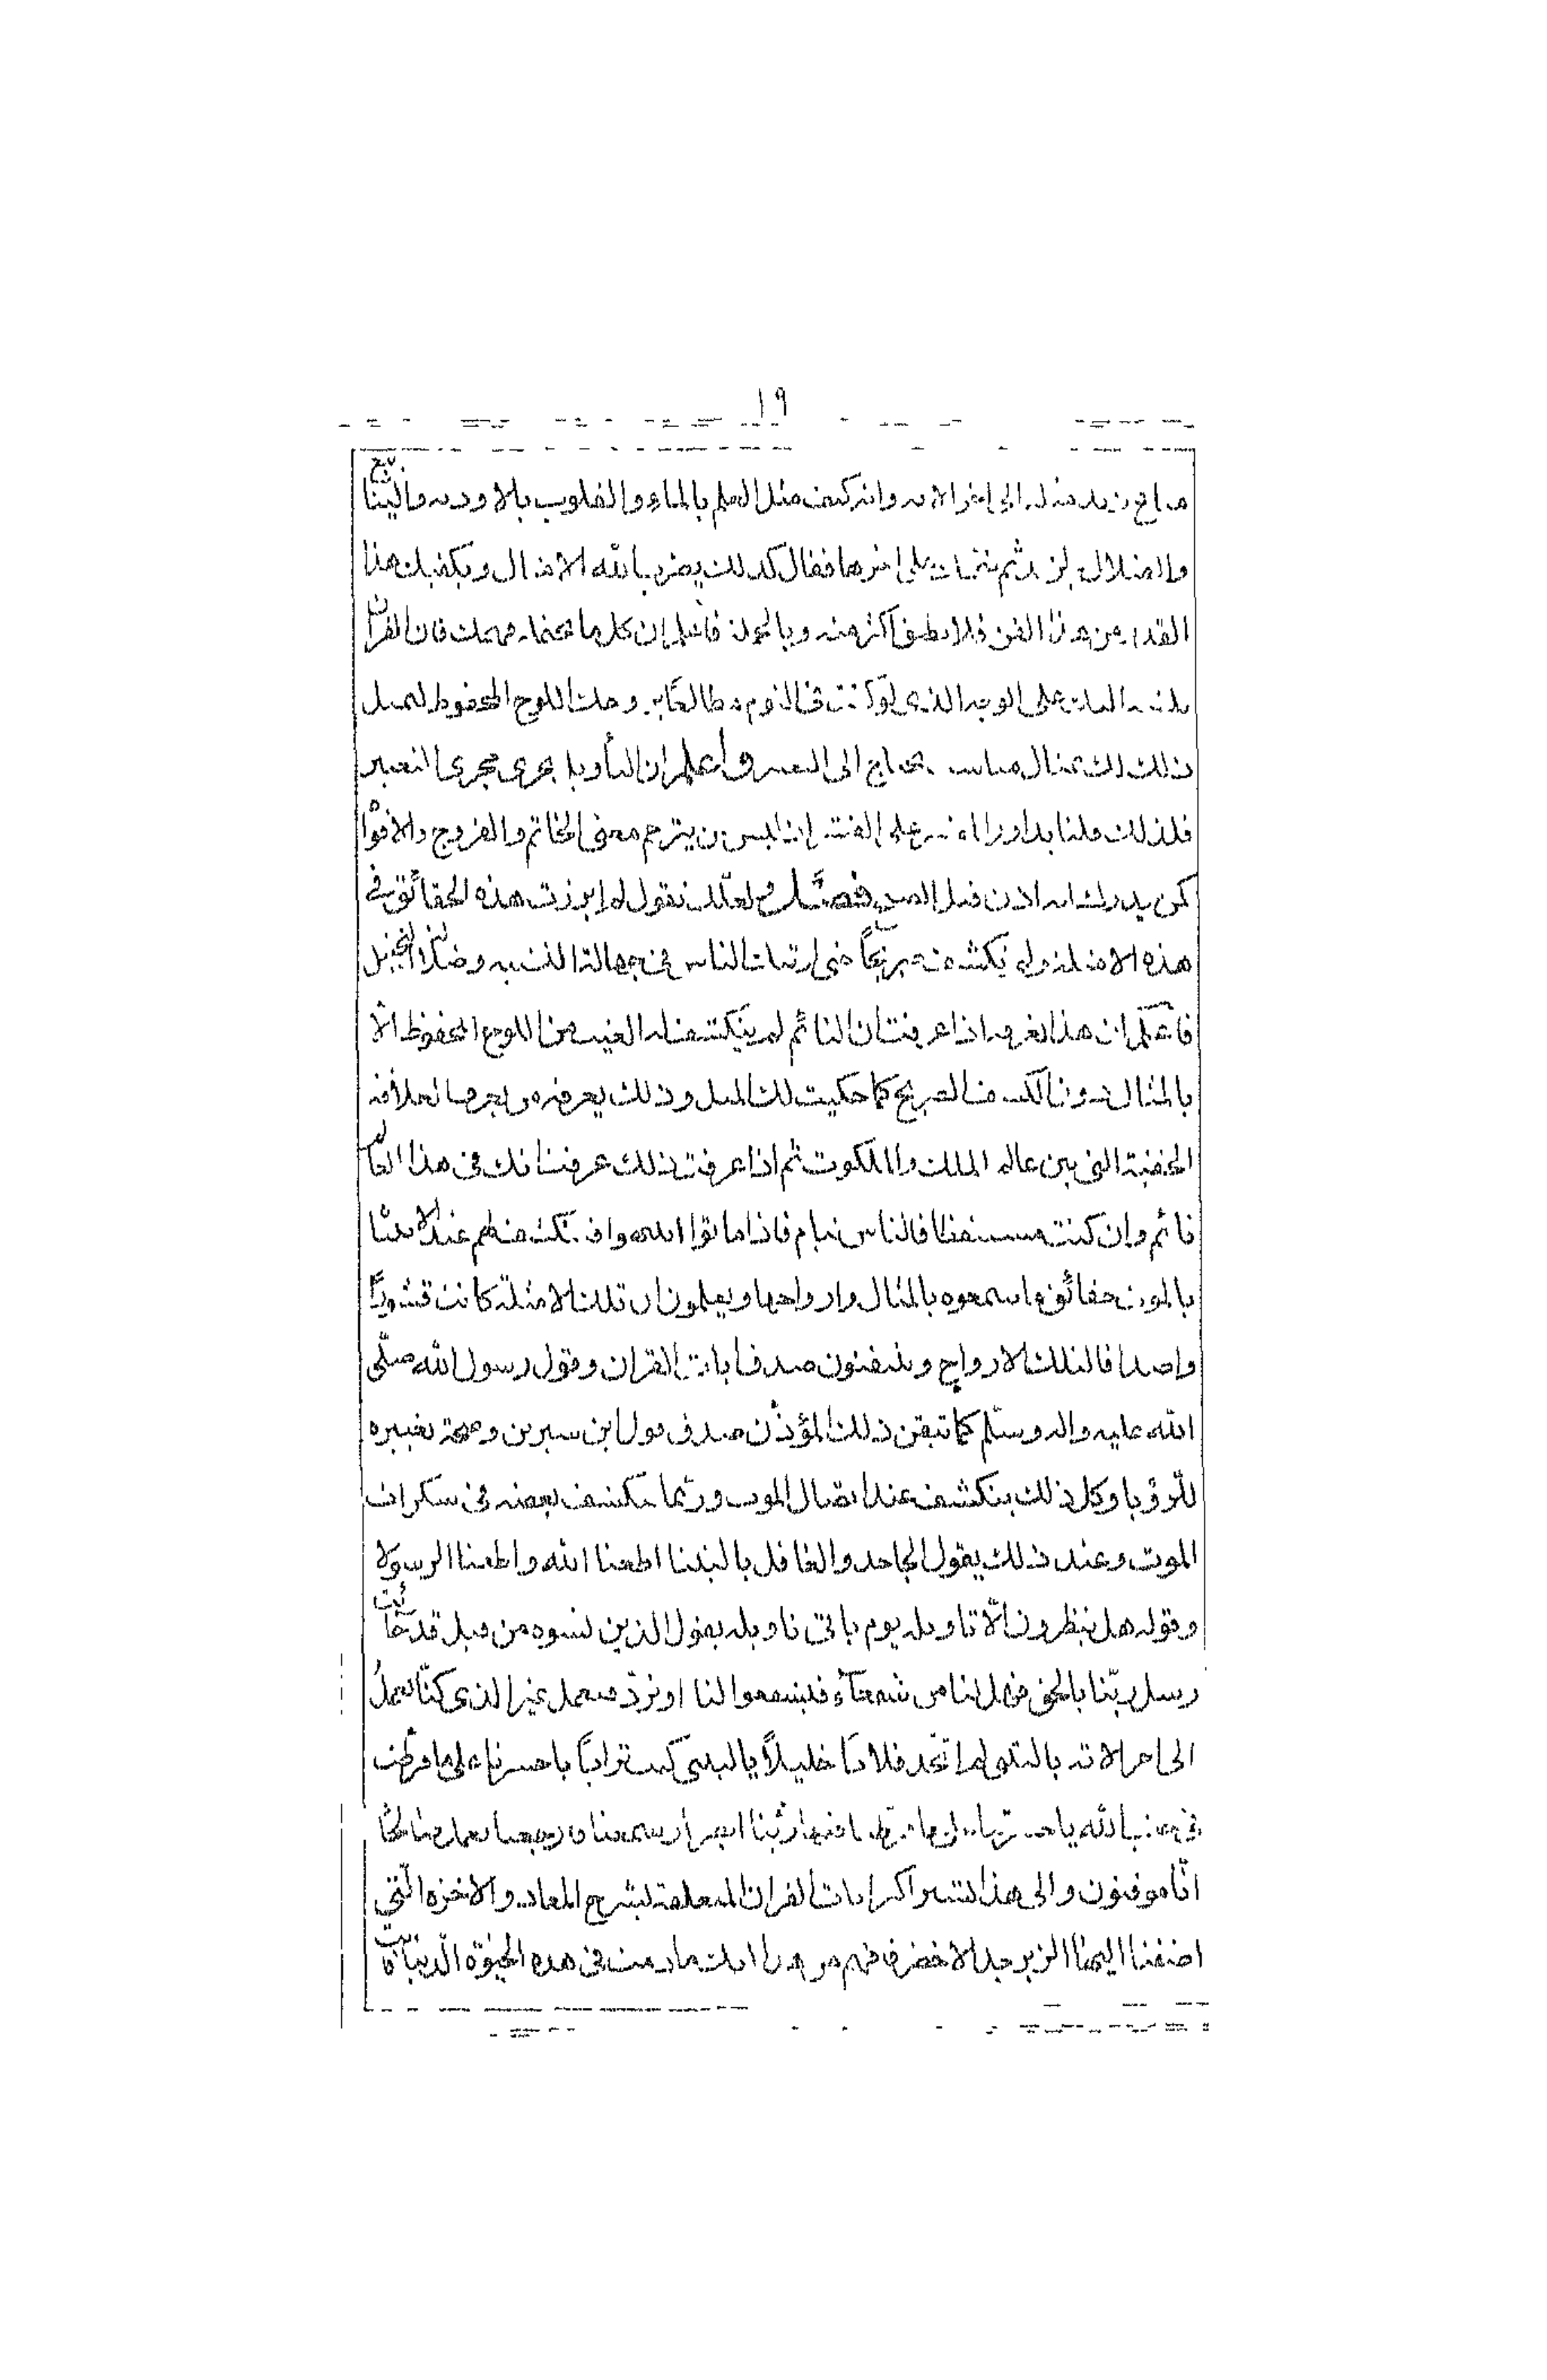 ١٩
متاع زبد مثله الى اخر الاية وانه كيف مثل العلم بالماء والقلوب بالاودية والينابيع
والضلال بالزبد ثم نبهك على اخرها فقال كذلك يضرب الله الامثال ويكفيك هذا
القدر من هذا الفن فلا تطيق اكثر منه وبالجملة فاعلم ان كل ما يحتمله فهمك فان القران
يلقيه اليك على الوجه الذى لو كنت فى النوم مطالعا بروحك اللوح المحفوظ لتمثل
ذلك لك بمثال مناسب يحتاج الى التعبير واعلم ان التأويل يجرى مجرى التعبير
فلذلك قلنا يدور المفسر على القشر اذ ليس من يترجم معنى الخاتم والفروج والافواه
كمن يدرك انه اذن قبل الصبح فصل لعلك تقول لم ابرزت هذه الحقائق فى
هذه الامثلة ولم تكشف صريحا حتى ارتبك الناس فى جهالة التشبيه وضلالة التخييل
فاعلم ان هذا تعرفه اذا عرفت ان النائم لم ينكشف له الغيب من اللوح المحفوظ الا
بالمثال دون الكشف الصريح كما حكيت لك المثل وذلك يعرفه من يعرف العلاقة
الخفية التى بين عالم الملك والملكوت ثم اذا عرفت ذلك عرفت انك فى هذا العالم
نائم وان كنت مستيقظا فالناس نيام فاذا ماتوا انتبهوا فينكشف لهم عند الانتباه
بالموت حقائق ما سمعوه بالمثال وارواحها ويعلمون ان تلك الامثلة كانت قشورا
واصدافا لتلك الارواح ويتيقنون صدق ايات القران وقول رسول الله صلى
الله عليه واله وسلم كما تيقن ذلك المؤذن صدق قول ابن سيرين وصحة تعبيره
للرؤيا وكل ذلك ينكشف عند اتصال الموت وربما ينكشف بعضه فى سكرات
الموت وعند ذلك يقول الجاحد والغافل ياليتنا اطعنا الله واطعنا الرسولا
وقوله هل ينظرون الا تاويله يوم ياتى تاويله يقول الذين نسوه من قبل قد جائت
رسل ربنا بالحق فهل لنا من شفعاء فليشفعوا لنا او نرد فنعمل غير الذى كنا نعمل
الى اخر الاية ياليتنى لم اتخذ فلانا خليلا ياليتنى كنت ترابا ياحسرتا على ما فرطت
فى جنب الله ياحسرتنا على ما فرطنا فيها ربنا ابصرنا وسمعنا فارجعنا نعمل صالحا
انا موقنون والى هذا تشير اكثر ايات القران المتعلقة بشرح المعاد والاخرة التى
اضفنا اليها الزبرجد الاخضر فافهم من هذا انك ما دمت فى هذه الحيوة الدنيا فانت